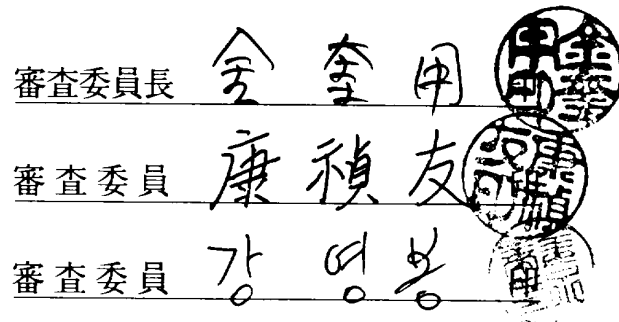 審査委員長 金 奎 用
審査委員 康 禎 友
審査委員 강 영 봉